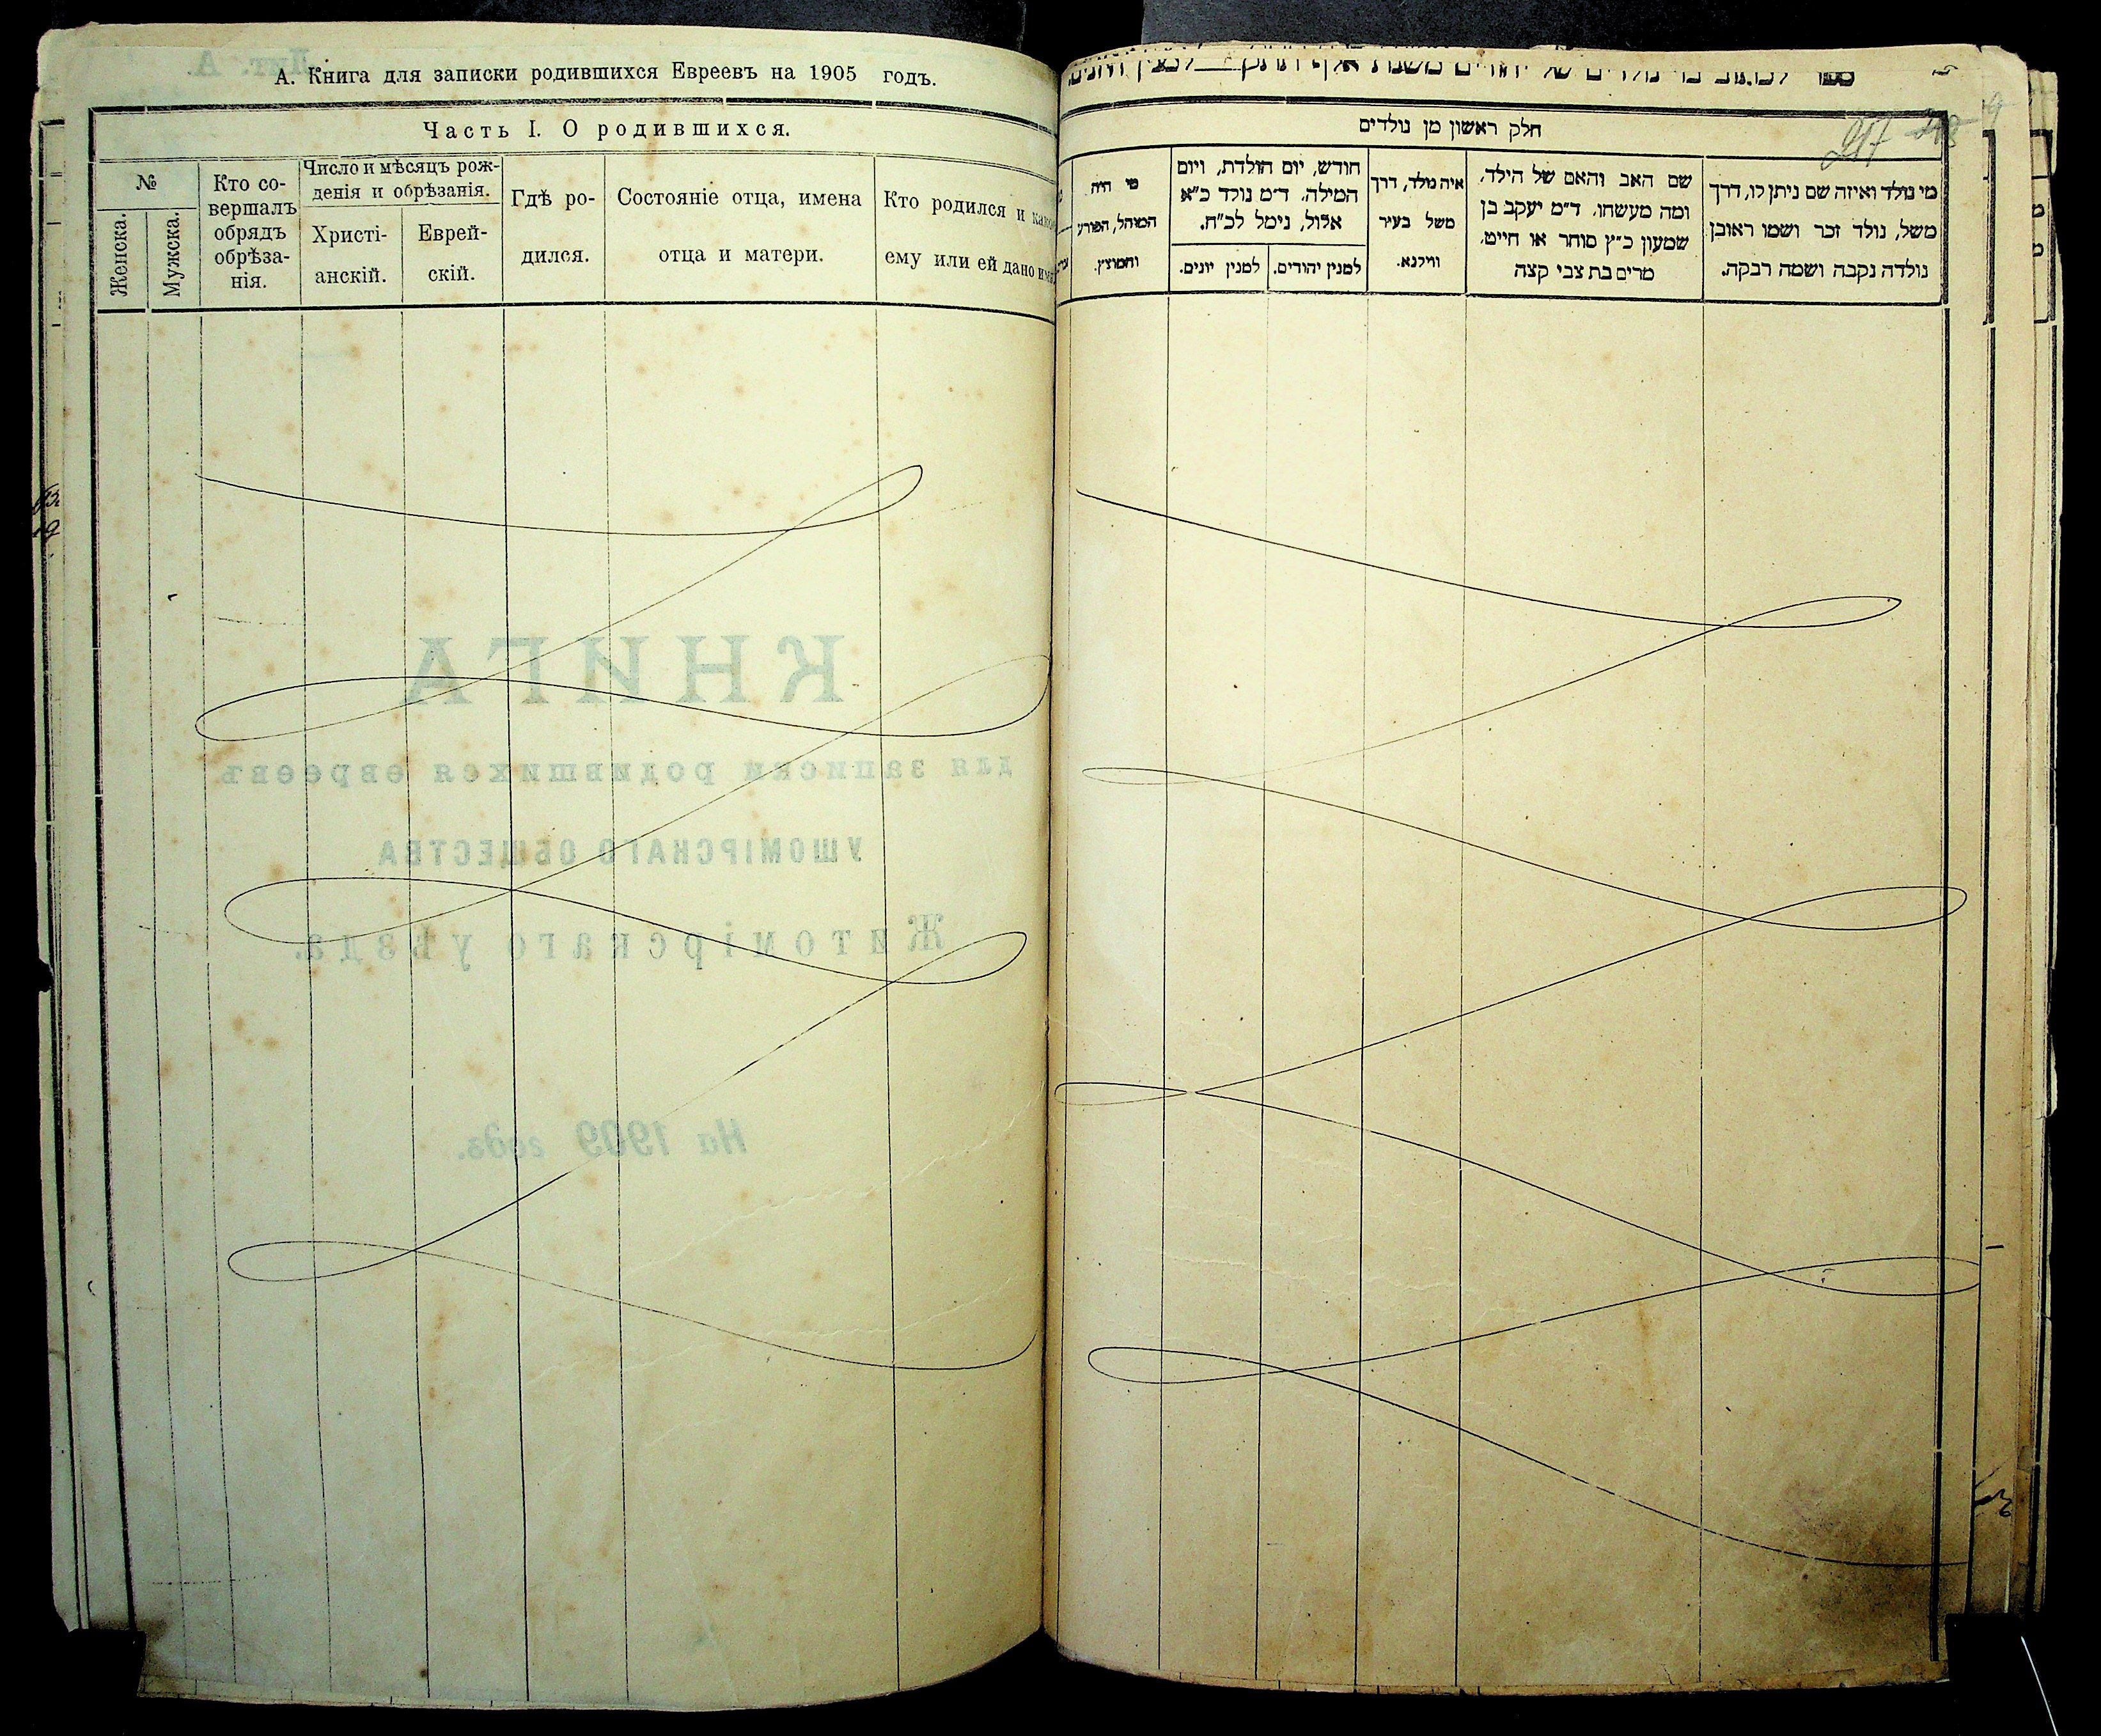 А. Книга для записки родившихся Евреевъ на 1905 годъ.
Часть I. О родившихся.
№
Женска.
Мужска.
Кто со-
вершалъ
обрядъ
обрѣза-
нія.
Число и мѣсяцъ рож-
денія и обрѣзанія.
Христі-
анскій.
Еврей-
скій.
Гдѣ ро-
дился.
Состояніе отца, имена
отца и матери.
Кто родился и какое
ему или ей дано имя
КНИГА
для записки родившихся евреевъ
УШОМІРСКАГО ОБЩЕСТВА
Житомірскаго уѣзда.
На 1909 годъ.
Лит. А.
ספר
חלק ראשון מן נולדים
217
מי נולד ואיזה שם ניתן לו, דרך
משל, נולד זכר ושמו ראובן
נולדה נקבה ושמה רבקה.
שם האב והאם של הילד,
ומה מעשהו. ד״מ יעקב בן
שמעון כ״ץ סוחר או חייט,
מרים בת צבי קצה
איה נולד, דרך
משל בעיר
ווילנא.
חודש, יום הולדת, ויום
המילה. ד״מ נולד כ״א
אלול, נימל לכ״ח.
למנין יהודים.
למנין יונים.
מי היה
המוהל, הפורע
והמוצץ.